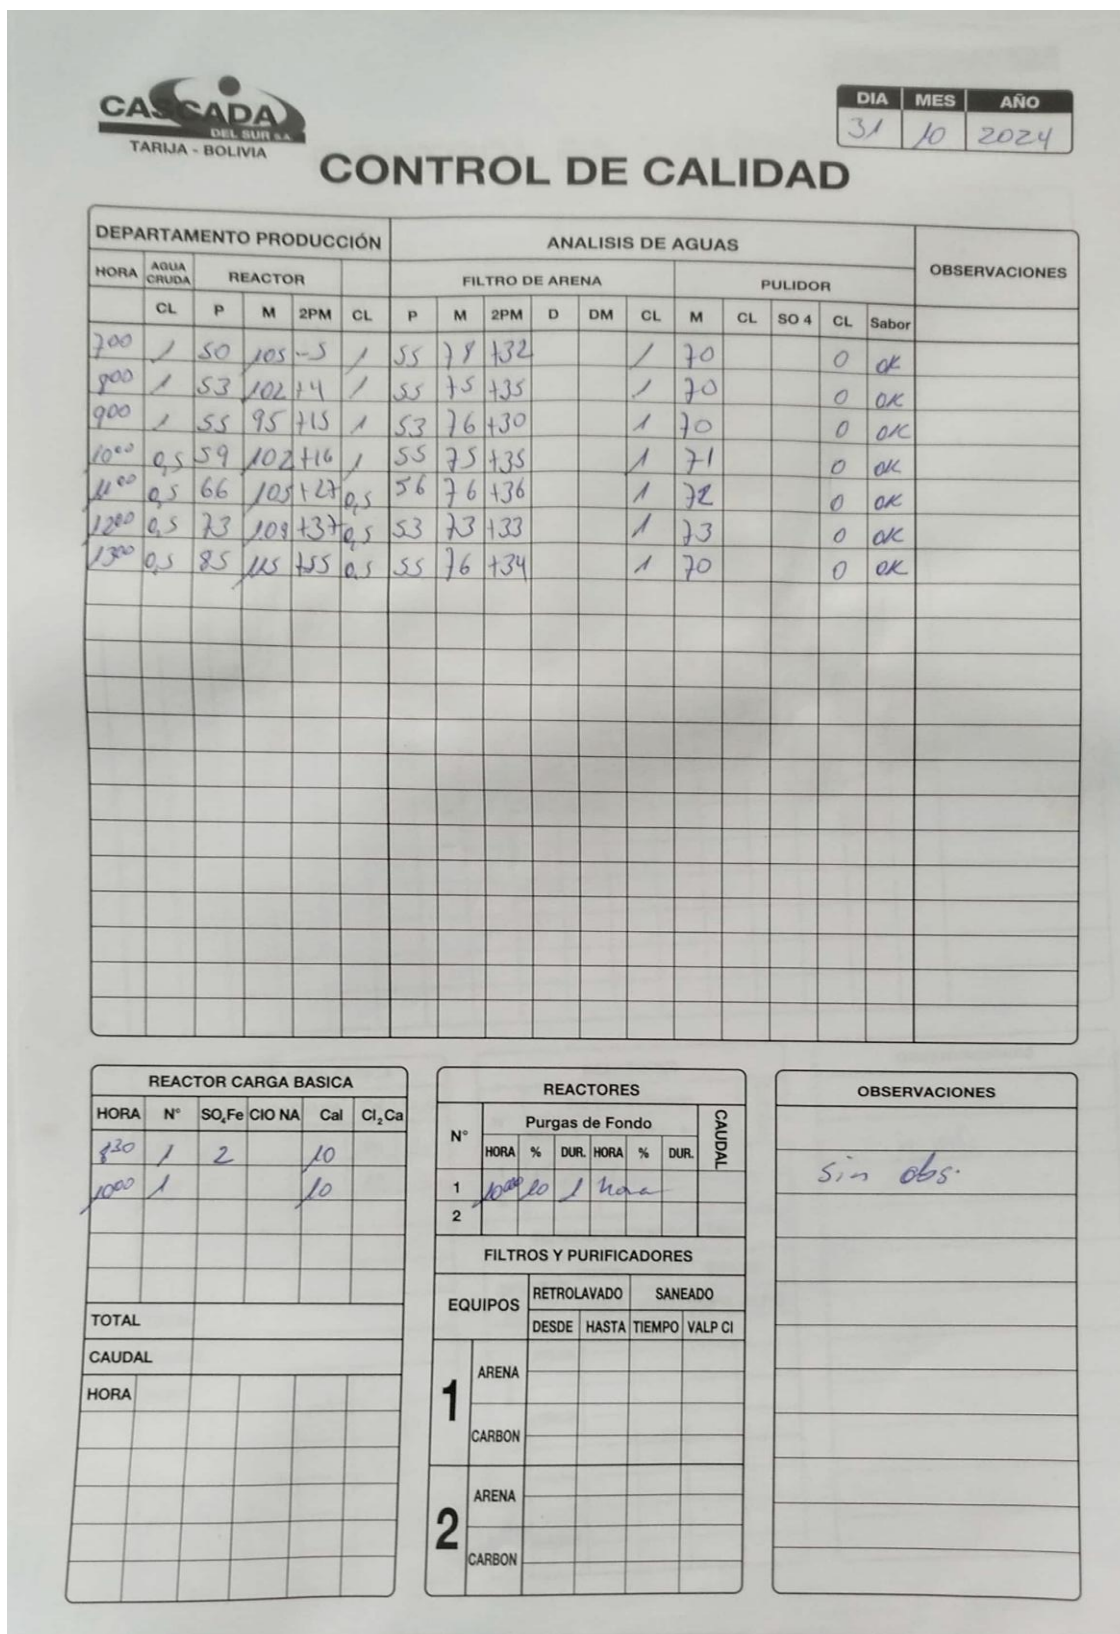 CASCADA
DEL SUR S.A.
TARIJA - BOLIVIA
DIA MES AÑO
31 10 2024
CONTROL DE CALIDAD
DEPARTAMENTO PRODUCCIÓN ANALISIS DE AGUAS OBSERVACIONES
HORA AGUA CRUDA REACTOR FILTRO DE ARENA PULIDOR
CL P M 2PM CL P M 2PM D DM CL M CL SO 4 CL Sabor
700 1 50 105 -5 1 55 78 +32 1 70 0 OK
800 1 53 102 +4 1 55 75 +35 1 70 0 OK
900 1 55 95 +15 1 53 76 +30 1 70 0 OK
1000 0,5 59 102 +16 1 55 75 +35 1 71 0 OK
1100 0,5 66 105 +27 0,5 56 76 +36 1 72 0 OK
1200 0,5 73 109 +37 0,5 53 73 +33 1 73 0 OK
1300 0,5 85 115 +55 0,5 55 76 +34 1 70 0 OK
REACTOR CARGA BASICA
HORA N° SO4Fe ClO NA Cal Cl2Ca
830 1 2 10
1000 1 10
TOTAL
CAUDAL
HORA
REACTORES
N° Purgas de Fondo CAUDAL
HORA % DUR. HORA % DUR.
1 1000 10 1 hora
2
FILTROS Y PURIFICADORES
EQUIPOS RETROLAVADO SANEADO
DESDE HASTA TIEMPO VALP Cl
1 ARENA
CARBON
2 ARENA
CARBON
OBSERVACIONES
sin obs.